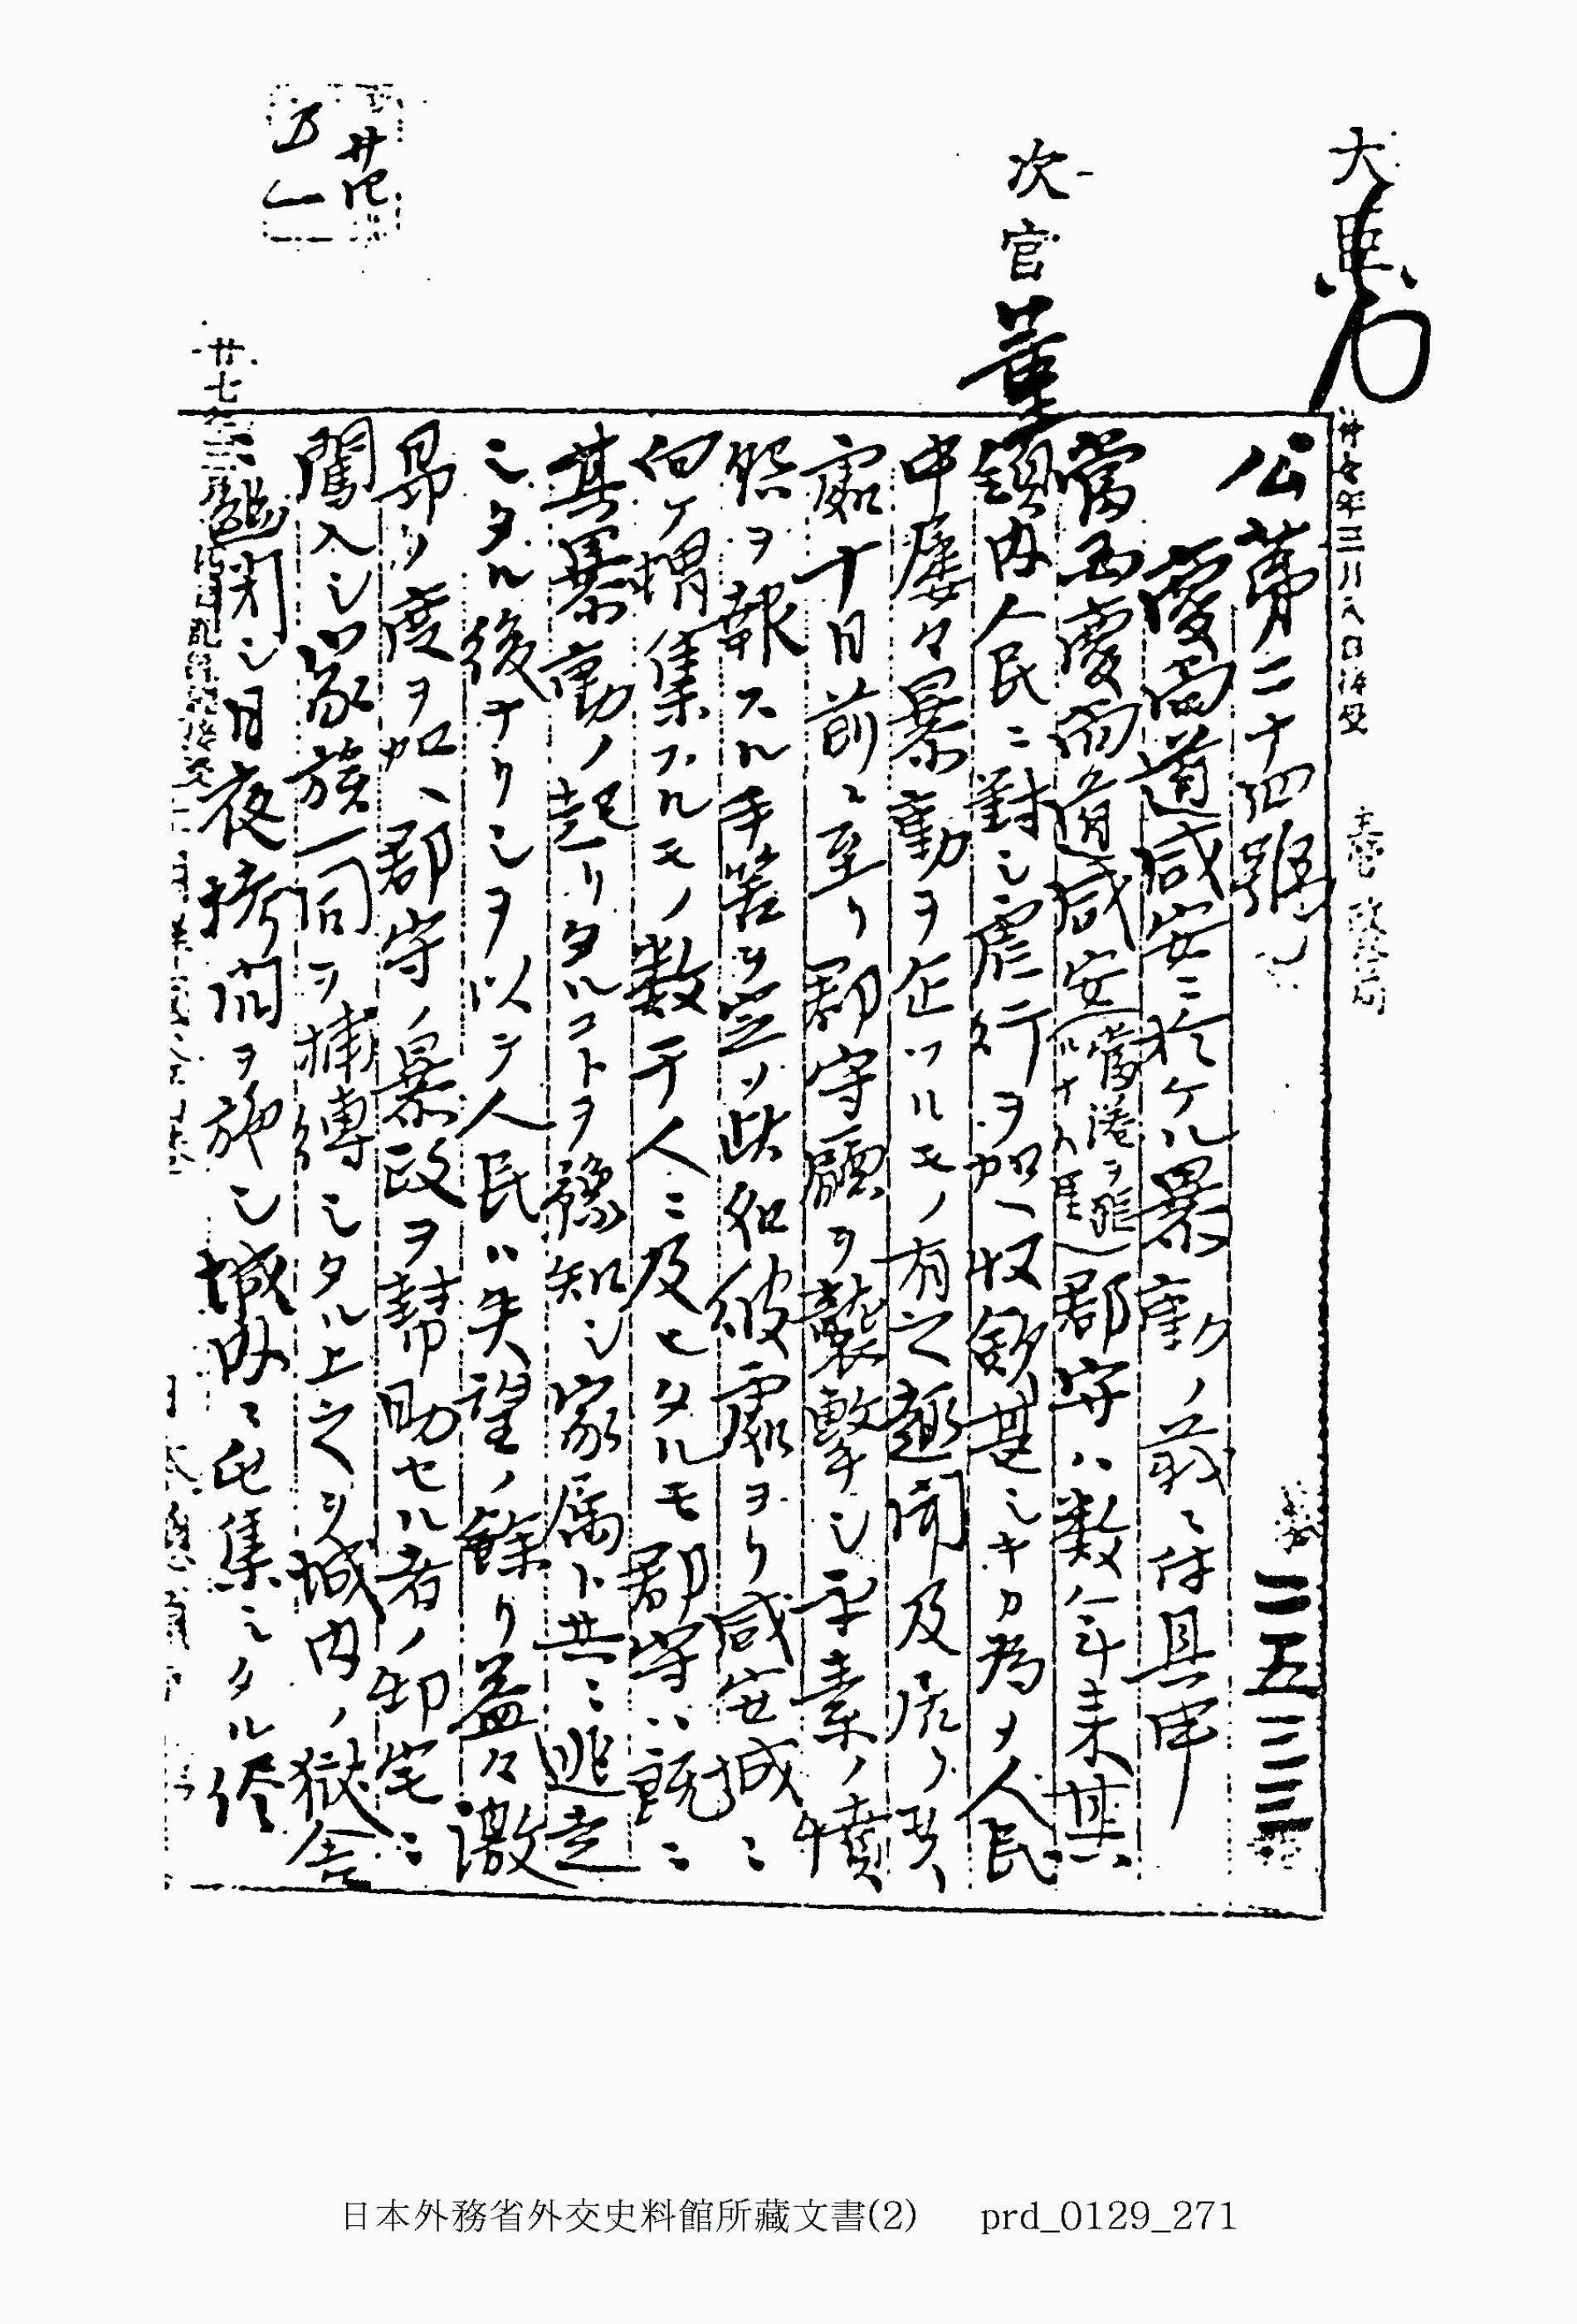 大臣
次官 董
廿七年三月八日接受 主管 政務局
公第二十四號
二五三三
慶尚道咸安ニ於ケル暴動ノ義ニ付具申
當国慶尚道咸安(當港ヲ距ル 里)郡守ハ数年来其
領内人民ニ對シ虐行ヲ加ヘ収斂甚シキカ為メ人民
中屡々暴動ヲ企ツルモノ有之趣聞及居リ候
處十日前ニ至リ郡守廳ヲ襲撃シ平素ノ憤
怒ヲ報スル手筈ヲ定メ此処彼處ヨリ咸安城ニ
向テ増集スルモノ数千人ニ及ヒタルモ郡守ハ既ニ
其暴動ノ起リタルコトヲ豫知シ家属ト共ニ逃走
シタル後ナリシヲ以テ人民ハ失望ノ餘リ益々激
昂ノ度ヲ加ヘ郡守ノ暴政ヲ幇助セル者ノ邸宅ニ
闖入シ家族一同ヲ捕縛シタル上之ヲ城内ノ獄舎
ニ幽閉シ日夜拷問ヲ施シ城内ニ屯集シタル侭
廿七年
日本外務省外交史料館所藏文書(2) prd_0129_271